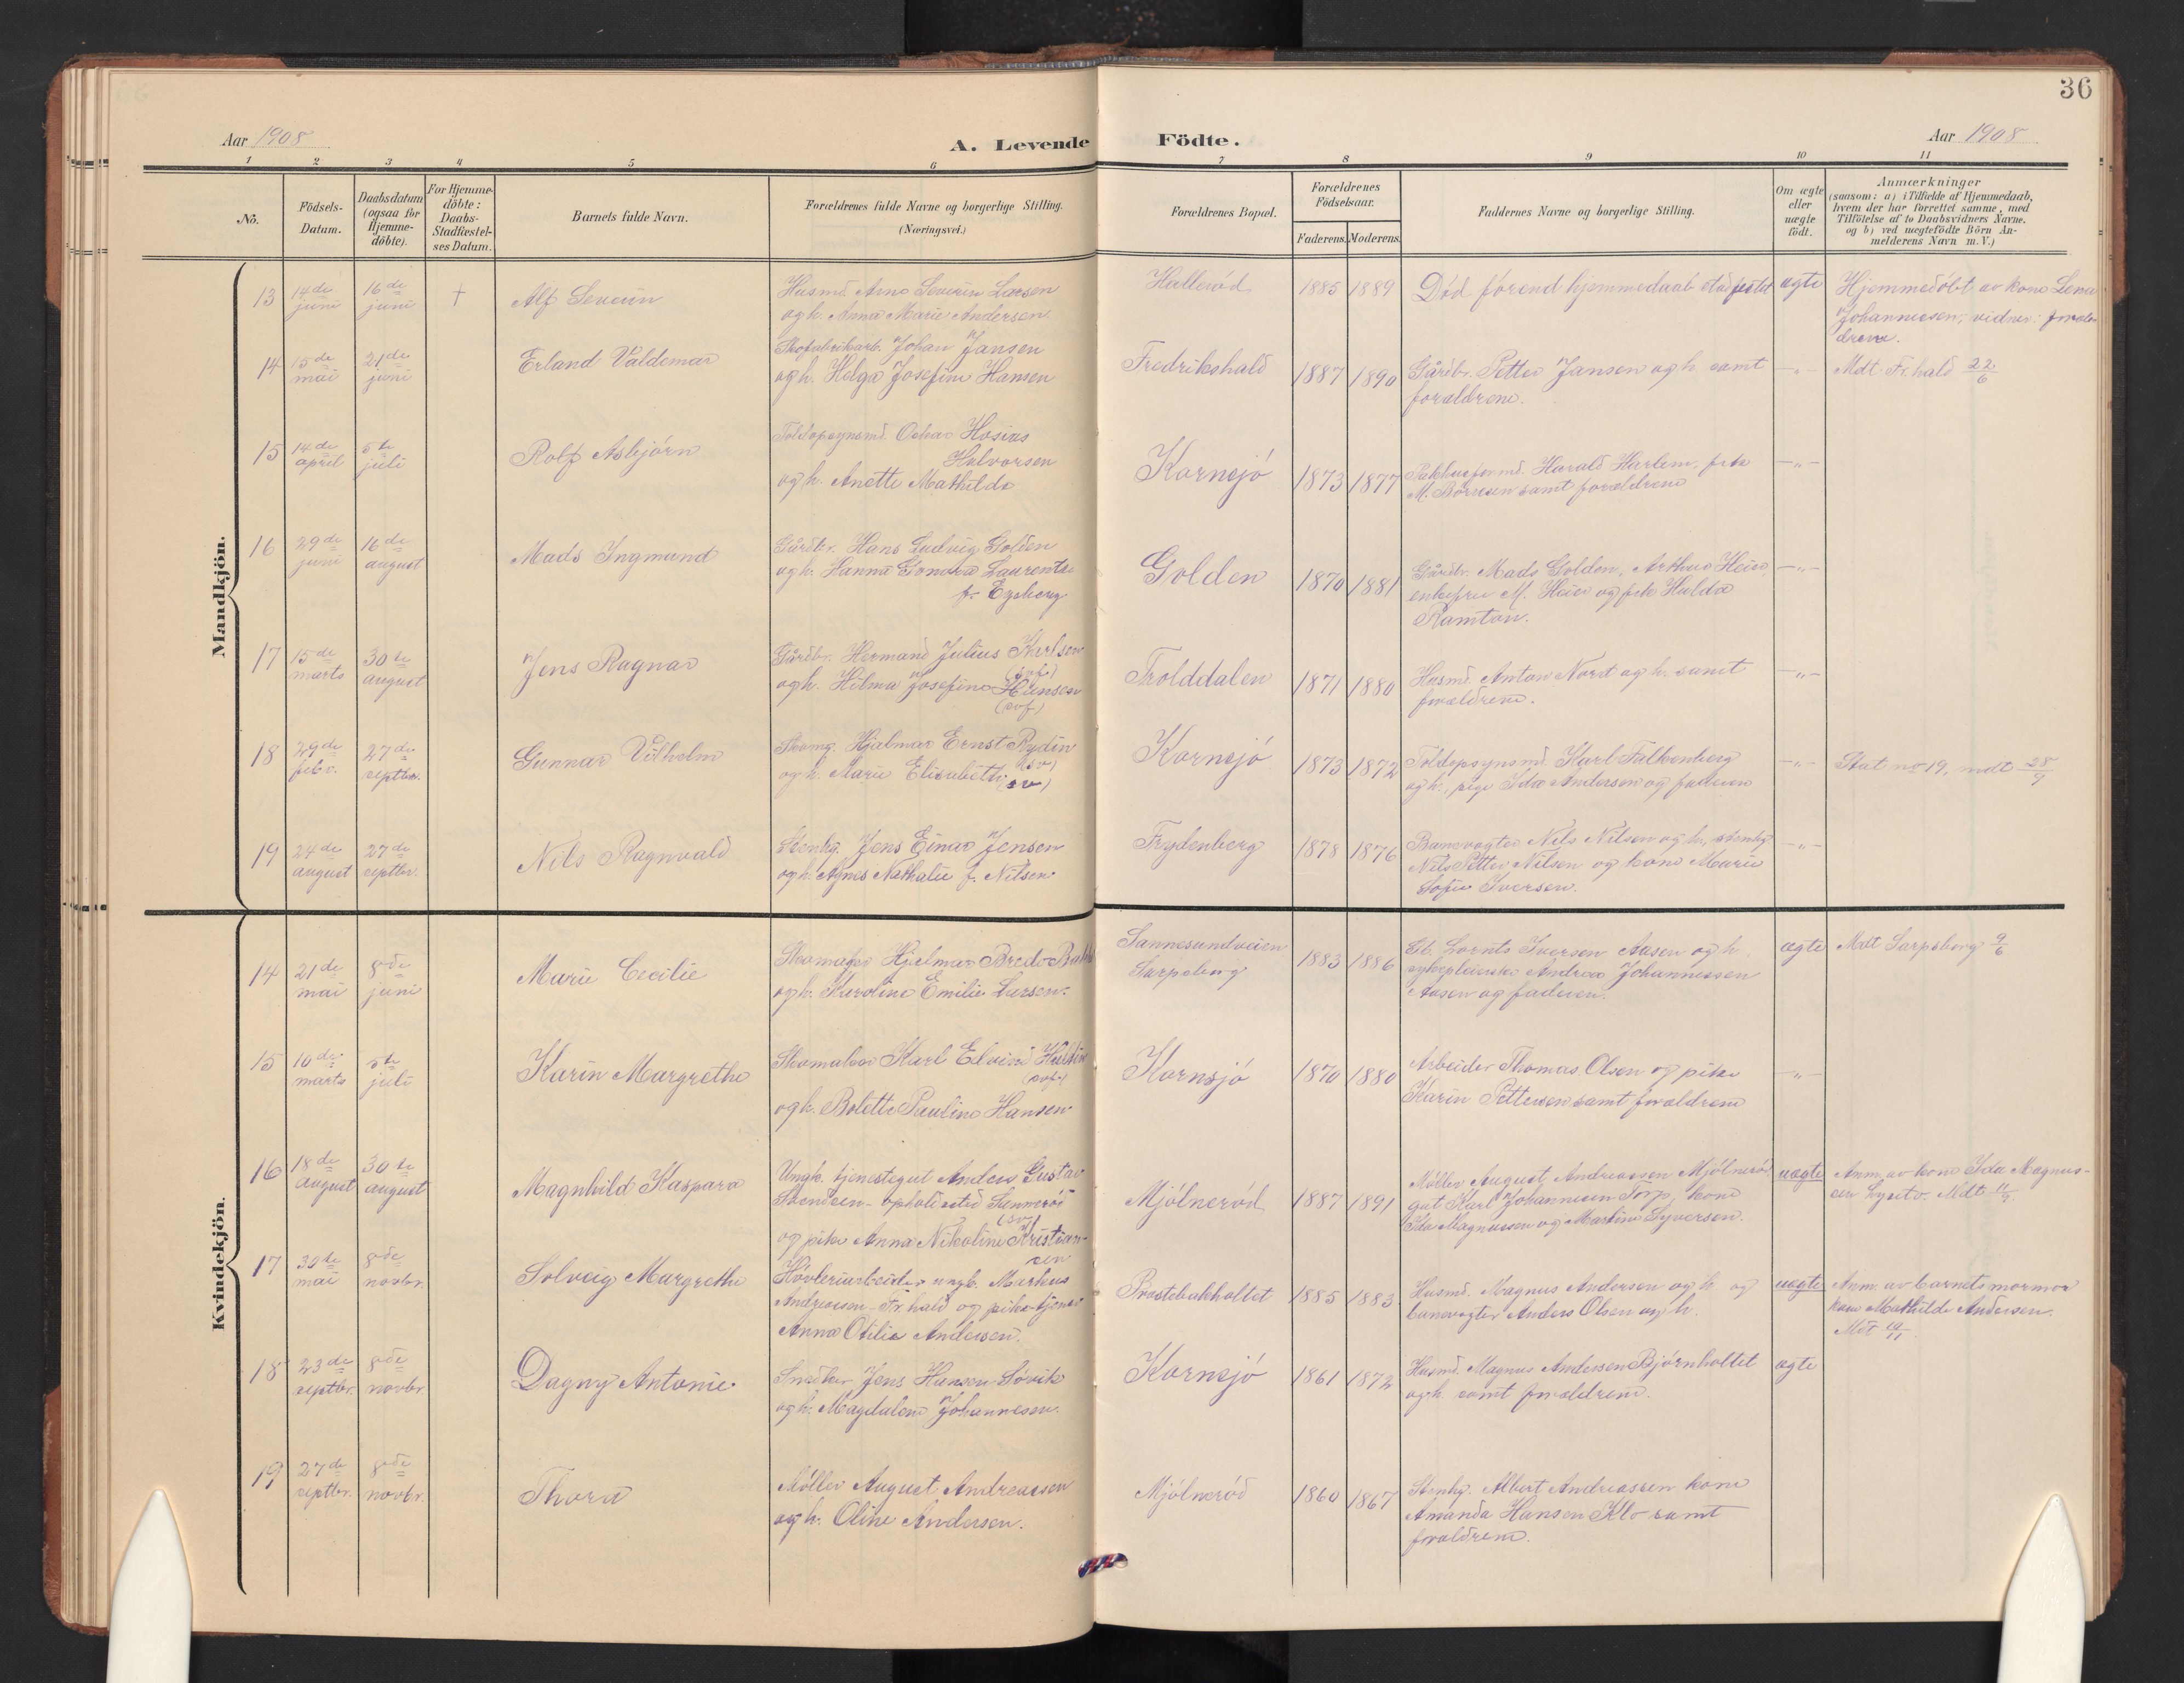 36
Aar 1908
A. Levende Födte.
Aar 1908
1 2 3 4 5 6 7 8 9 10 11
Nö.
Födsels-
Datum.
Daabsdatum
(ogsaa for
Hjemme-
döbte).
For Hjemme-
döbte:
Daabs-
Stadfæstel-
ses Datum.
Barnets fulde Navn.
Forældrenes fulde Navne og borgerlige Stilling.
(Næringsvei.)
Forældrenes Bopæl.
Forældrenes
Födselsaar.
Faderens. Moderens.
Faddernes Navne og borgerlige Stilling.
Om ægte
eller
uægte
födt.
Anmærkninger
(saasom: a) i Tilfælde af Hjemmedaab,
hvem der har forrettet samme, med
Tilföielse af to Daabsvidners Navne,
og b) ved uægtefödte Börn An-
melderens Navn m. V.)
Mandkjön.
13
14de
juni
16de
juni
†
Alf Severin
Husmd. Arne Severin Larsen
og h. Anna Marie Andersen
Hallerød
1885 1889
Død førend hjemmedaab stadfestet
ægte
Hjemmedøbt av kone Lena
Johannesen; vidner: foræl-
drene.
14
15de
mai
21de
juni
Erland Valdemar
Skofabrikarb. Johan Jansen
og h. Helga Josefine Hansen
Fredrikshald
1887 1890
Gårdbr. Petter Jansen og h. samt
forældrene.
—„—
Mdt. Fr.hald 22/6
15
14de
april
5te
juli
Rolf Asbjørn
Toldopsynsmd. Oskar Hosias
Halvorsen
og h. Anette Mathilde
Kornsjø
1873 1877
Pakhusformd. Harald Harlem, frk
M. Børresen samt forældrene
—„—
16
29de
juni
16de
august
Mads Ingmund
Gårdbr. Hans Ludvig Golden
og h. Hanna Gonora Laurentse
f. Eysberg
Golden
1870 1881
Gårdbr. Mads Golden, Arthur Heier,
enkefru M. Heier og frk Hulda
Ramton.
—„—
17
15de
marts
30te
august
Jens Ragnar
Gårdbr. Hermand Julius Karlsen
(svf.)
og h. Hilma Josefine Hansen
(svf.)
Trolddalen
1871 1880
Husmd. Anton Nord og h. samt
forældrene.
—„—
18
29de
febr.
27de
septbr.
Gunnar Vilhelm
Skomg. Hjalmar Ernst Rydin
(sv)
og h. Marie Elisabeth
(sv)
Kornsjø
1873 1872
Toldopsynsmd. Karl Falkenberg
og h., pige Ida Andersen og faderen
—„—
Stat no 19, mdt 28/9
19
24de
august
27de
septbr.
Nils Ragnvald
Stenhg. Jens Einar Jensen
og h. Agnes Nathalie f. Nilsen
Frydenberg
1878 1876
Banevogter Nils Nilsen og h., stenhg.
Nils Petter Nilsen og kone Marie
Sofie Iversen.
—„—
Kvindekjön.
14
21de
mai
8de
juni
Marie Cecilie
Skomaker Hjalmar Bredo
og h. Karoline Emilie Larsen.
Sannesundveien
Sarpsborg
1883 1886
Gb. Lornts Iversen Aasen og h.
sykepleierske Andrea Johannessen
Aasen og faderen.
ægte
Mdt Sarpsborg 9/6
15
10de
marts
5te
juli
Karin Margrethe
Skomaker Karl Edvin
(svf.)
og h. Bolette Pauline Hansen
Kornsjø
1870 1880
Arbeider Thomas Olsen og pike
Karin Pettersen samt forældrene
—„—
16
18de
august
30te
august
Magnhild Kaspara
Ungk. tjenestegut Anders Gustav
Svendsen - opholdssted Sannerød
(sv.)
og pike Anna Nikoline Kristian-
sen
Mjølnerød
1887 1891
Møller August Andreassen Mjølnerød
gut Karl Johannesen Torp, kone
Ida Magnussen og Martine Syversen.
uægte
Anm. av kone Ida Magnus-
sen Mdt 11/9.
17
30te
mai
8de
novbr.
Solveig Margrethe
Høvleriarbeider ungk. Markus
Andreassen - Fr.hald og pike-tjener
Anna Otilie Andersen.
Prestebakholtet
1885 1883
Husmd. Magnus Andersen og h. og
banevogter Anders Olsen og h.
uægte
Anm. av barnets mormor
kone Mathilde Andersen.
Mdt 10/11.
18
23de
septbr.
8de
novbr.
Dagny Antonie
Snedker Jens Hansen Søvik
og h. Magdalene Johannesen.
Kornsjø
1861 1872
Husmd. Magnus Andersen Bjørnholtet
og h. samt forældrene.
ægte
19
27de
septbr.
8de
novbr.
Thora
Møller August Andreassen
og h. Oline Andersen.
Mjølnerød
1860 1867
Stenhg. Albert Andreassen kone
Amanda Hansen Klo samt
forældrene.